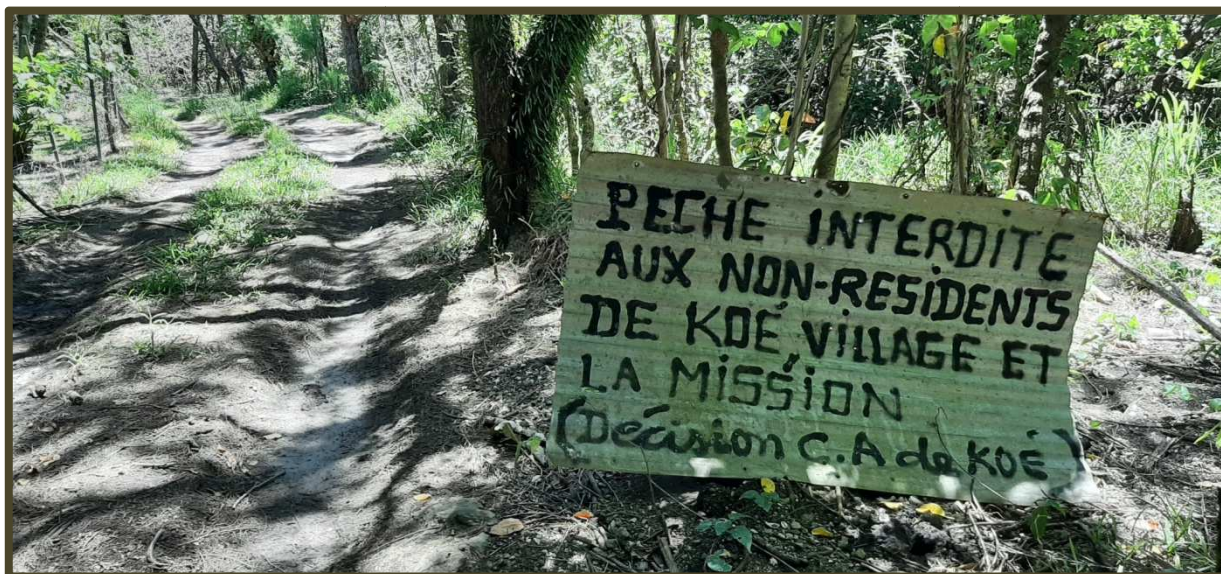 PECHE INTERDITE
AUX NON-RESIDENTS
DE KOÉ, VILLAGE ET
LA MISSION
(Décision C.A de KOÉ)